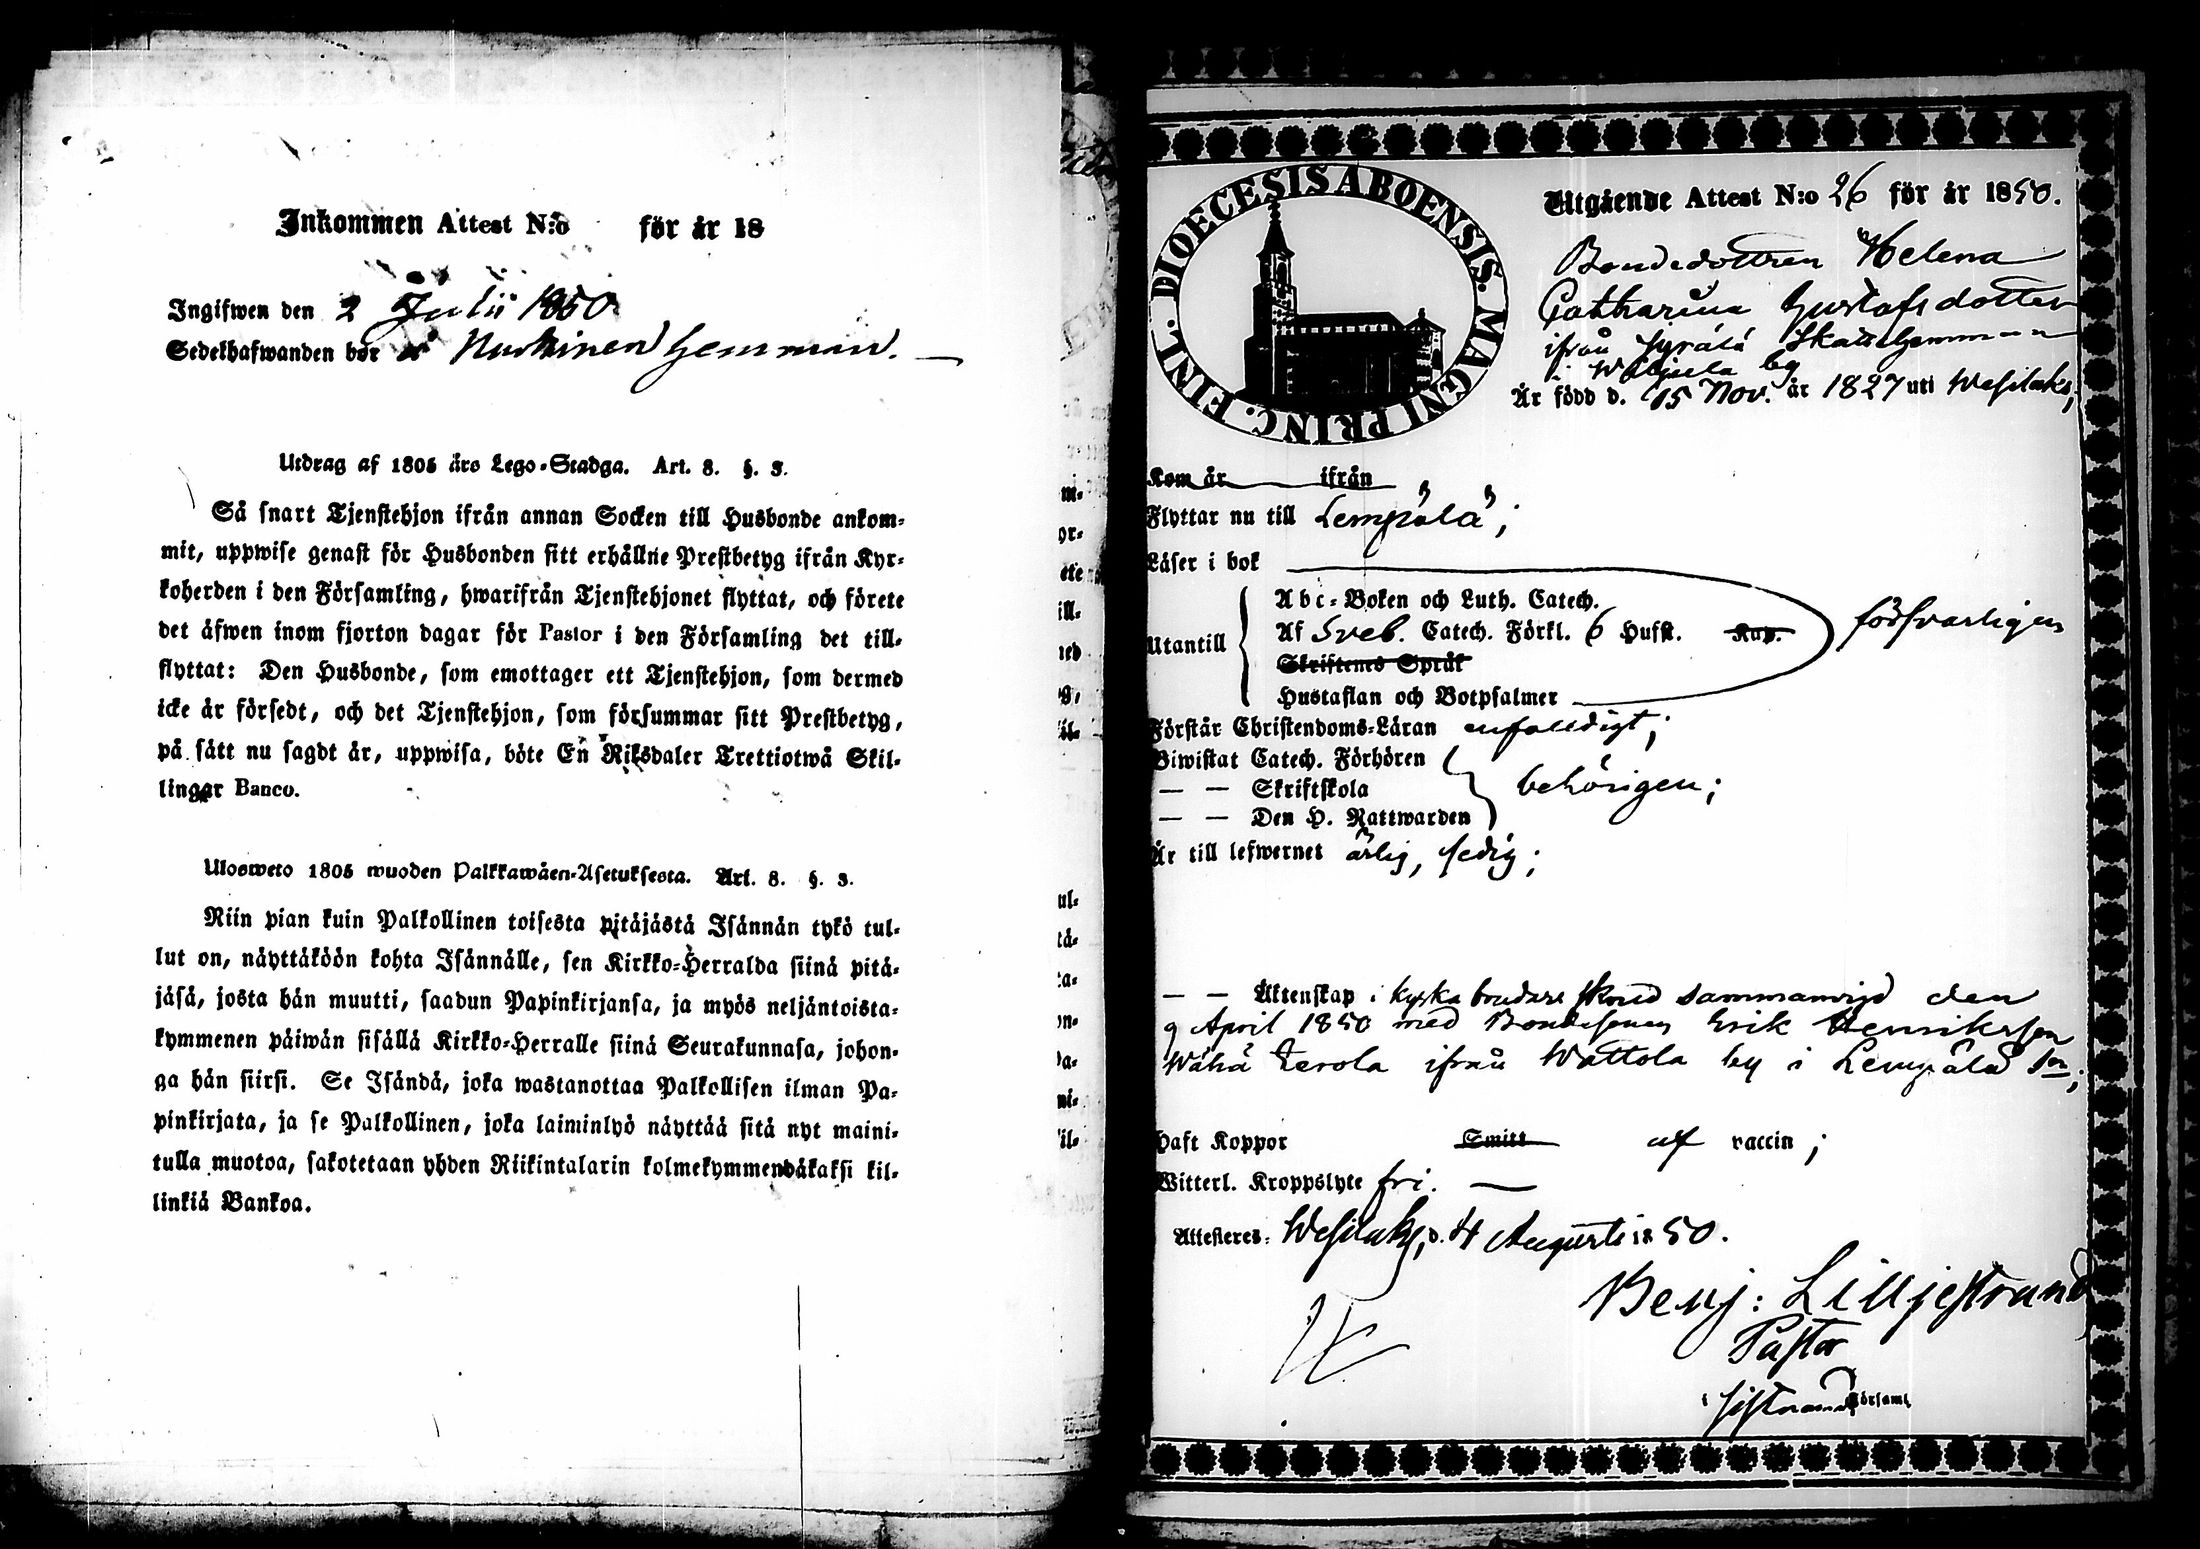 Inkommen Attest N:o för år 18
Ingifwen den 2 Julii 1850.
Sedelhafwanden bor å Nurkinen Hemman.
Utdrag af 1805 års Lego-Stadga. Art. 8. §. 3.
Så snart Tjenstehjon ifrån annan Socken till Husbonde ankom-
mit, uppwise genast för Husbonden sitt erhållne Prestbetyg ifrån Kyr-
koherden i den Församling, hwarifrån Tjenstehjonet flyttat, och förete
det äfwen inom fjorton dagar för Pastor i den Församling det till-
flyttat: Den Husbonde, som emottager ett Tjenstehjon, som dermed
icke är försedt, och det Tjenstehjon, som försummar sitt Prestbetyg,
på sätt nu sagdt är, uppwisa, böte En Riksdaler Trettiotwå Skil-
lingar Banco.
Ulosweto 1805 wuoden Palkkawäen-Asetuksesta. Art. 8. §. 3.
Niin pian kuin Palkollinen toisesta pitäjästä Isännän tykö tul-
lut on, näyttäköön kohta Isännälle, sen Kirkko-Herralda siinä pitä-
jäsä, josta hän muutti, saadun Papinkirjansa, ja myös neljäntoista-
kymmenen päiwän sisällä Kirkko-Herralle siinä Seurakunnasa, johon-
ga hän siirsi. Se Isändä, joka wastanottaa Palkollisen ilman Pa-
pinkirjata, ja se Palkollinen, joka laiminlyö näyttää sitä nyt maini-
tulla muotoa, sakotetaan yhden Riikintalarin kolmekymmendäkaksi kil-
linkiä Bankoa.
DIOECESIS ABOENSIS. MAGNI PRINC. FINL.
Utgående Attest N:o 26 för år 1850.
Bondedottren Helena
Catharina Gustafsdotter
ifrån Skattehemman
i by
Är född d. 15 Nov. år 1827 uti Wesilaks;
Kom år ifrån
Flyttar nu till Lempälä;
Läser i bok
Abc-Boken och Luth. Catech.
Utantill Af Sveb. Catech. Förkl. 6 Hufst. Kap. försvarligen
Skriftenes Språk
Hustaflan och Botpsalmer
Förstår Christendoms-Läran enfaldigt;
Biwistat Catech. Förhören
— — Skriftskola behörigen;
— — Den H. Nattwarden
Är till lefwernet ärlig, ledig;
— — Äktenskap i kyska brudars stånd sammanvigd den
9 April 1850 med Bondesonen Erik Henriksson
Wähä Zerola ifrån Wattola by i Lempälä Sn;
Haft Koppor Smitt af vaccin;
Witterl. Kroppslyte fri. —
Attesteres: Wesilaks, d. 4 Augusti 1850.
Benj: Lilljestrand
Pastor
i Församl